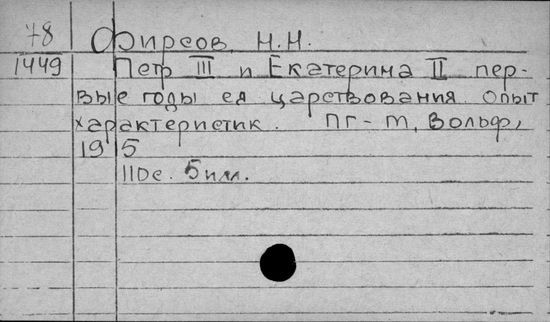 78 Фирсов, Н.Н.
1449 Петр III и Екатерина II пер-
вые годы ея царствования. опыт
характеристик. ПГ-М, Вольф,
19 5
110с. 5 илл.